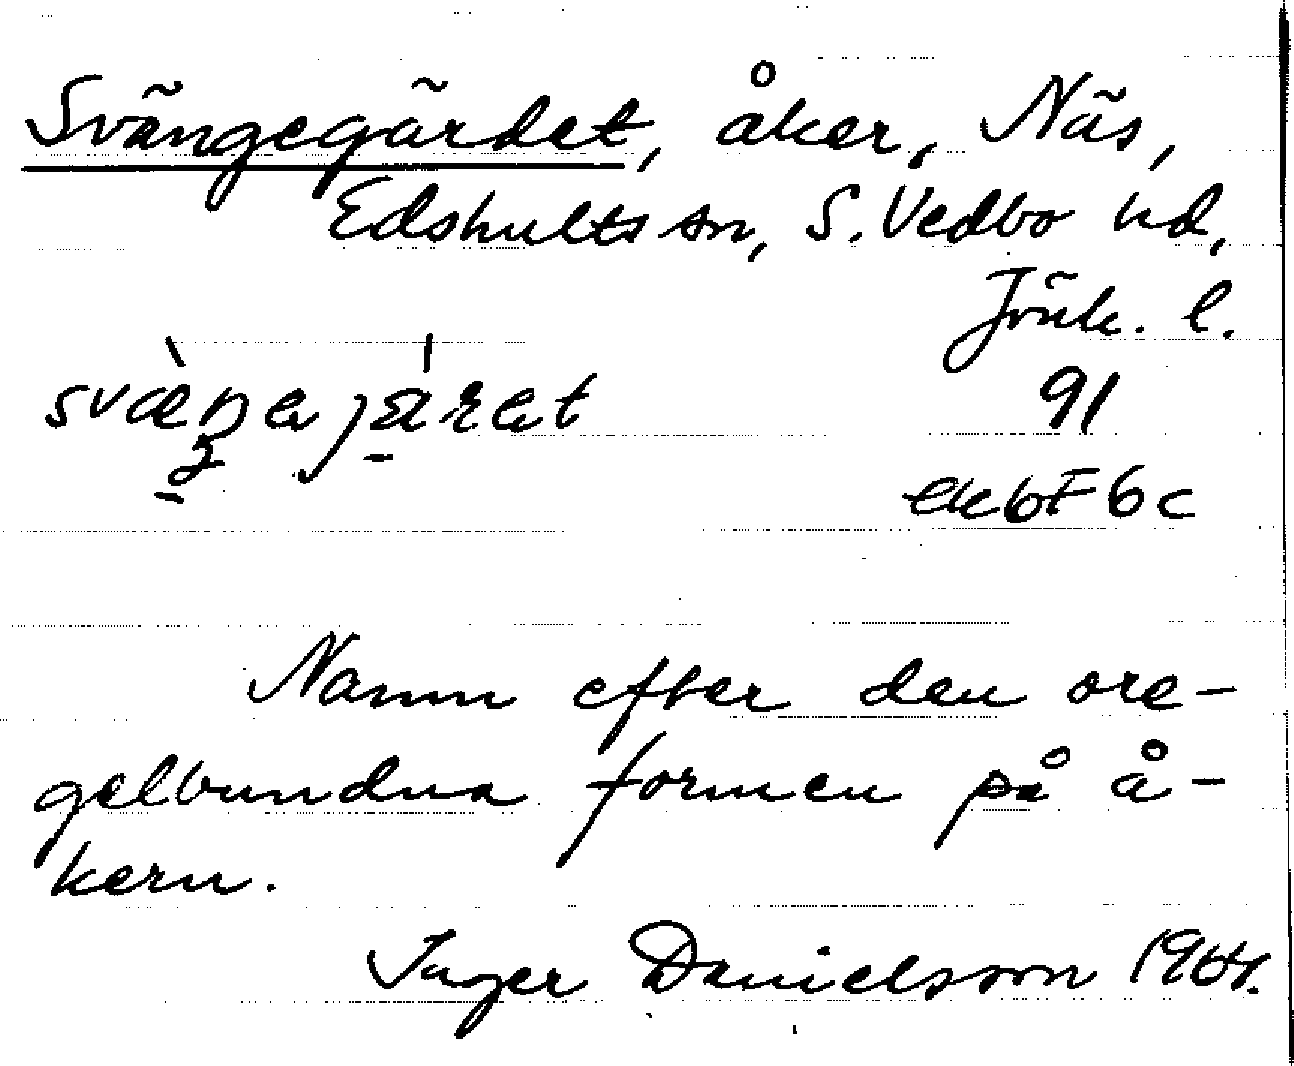 Svängegärdet, åker, Näs,
Edshults sn, S. Vedbo hd,
Jönk. l.
91
ek6F6c
Namn efter den ore-
gelbundna formen på å-
kern.
Inger Danielsson